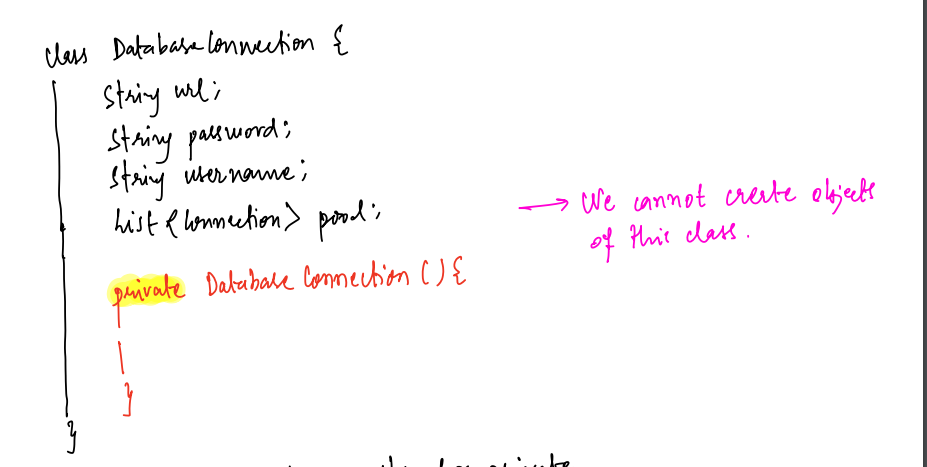 class DatabaseConnection {
String url;
String password;
String username;
List <Connection> pool;
→ We cannot create objects
of this class.
private Database Connection () {
}
}